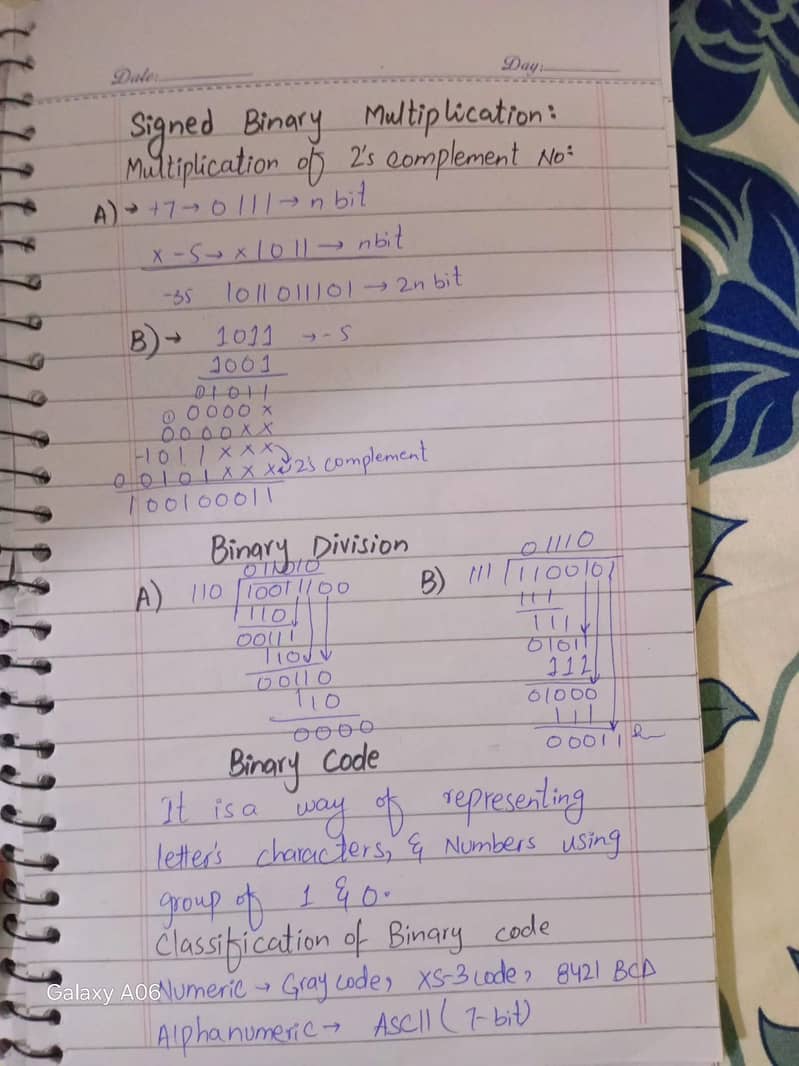 Date:
Day:
Signed Binary Multiplication:
Multiplication of 2's complement No:
A) → +7 → 0111 → n bit
x -5 → x 1011 → nbit
-35 1011011101 → 2n bit
B) → 1011 → -5
1001
01011
① 0000x
0000xx
-1011xxx
00101xxx 2's complement
100100011
Binary Division
A) 110
10011100
110
00111
110
00110
110
0000
B) 111
01110
1100101
111
111
01011
111
01000
111
00011
Binary Code
It is a way of representing
letter's characters, & Numbers using
group of 1 & 0.
Classification of Binary code
Numeric → Gray code, XS-3 code, 8421 BCD
Alphanumeric → ASCII (7-bit)
Galaxy A06